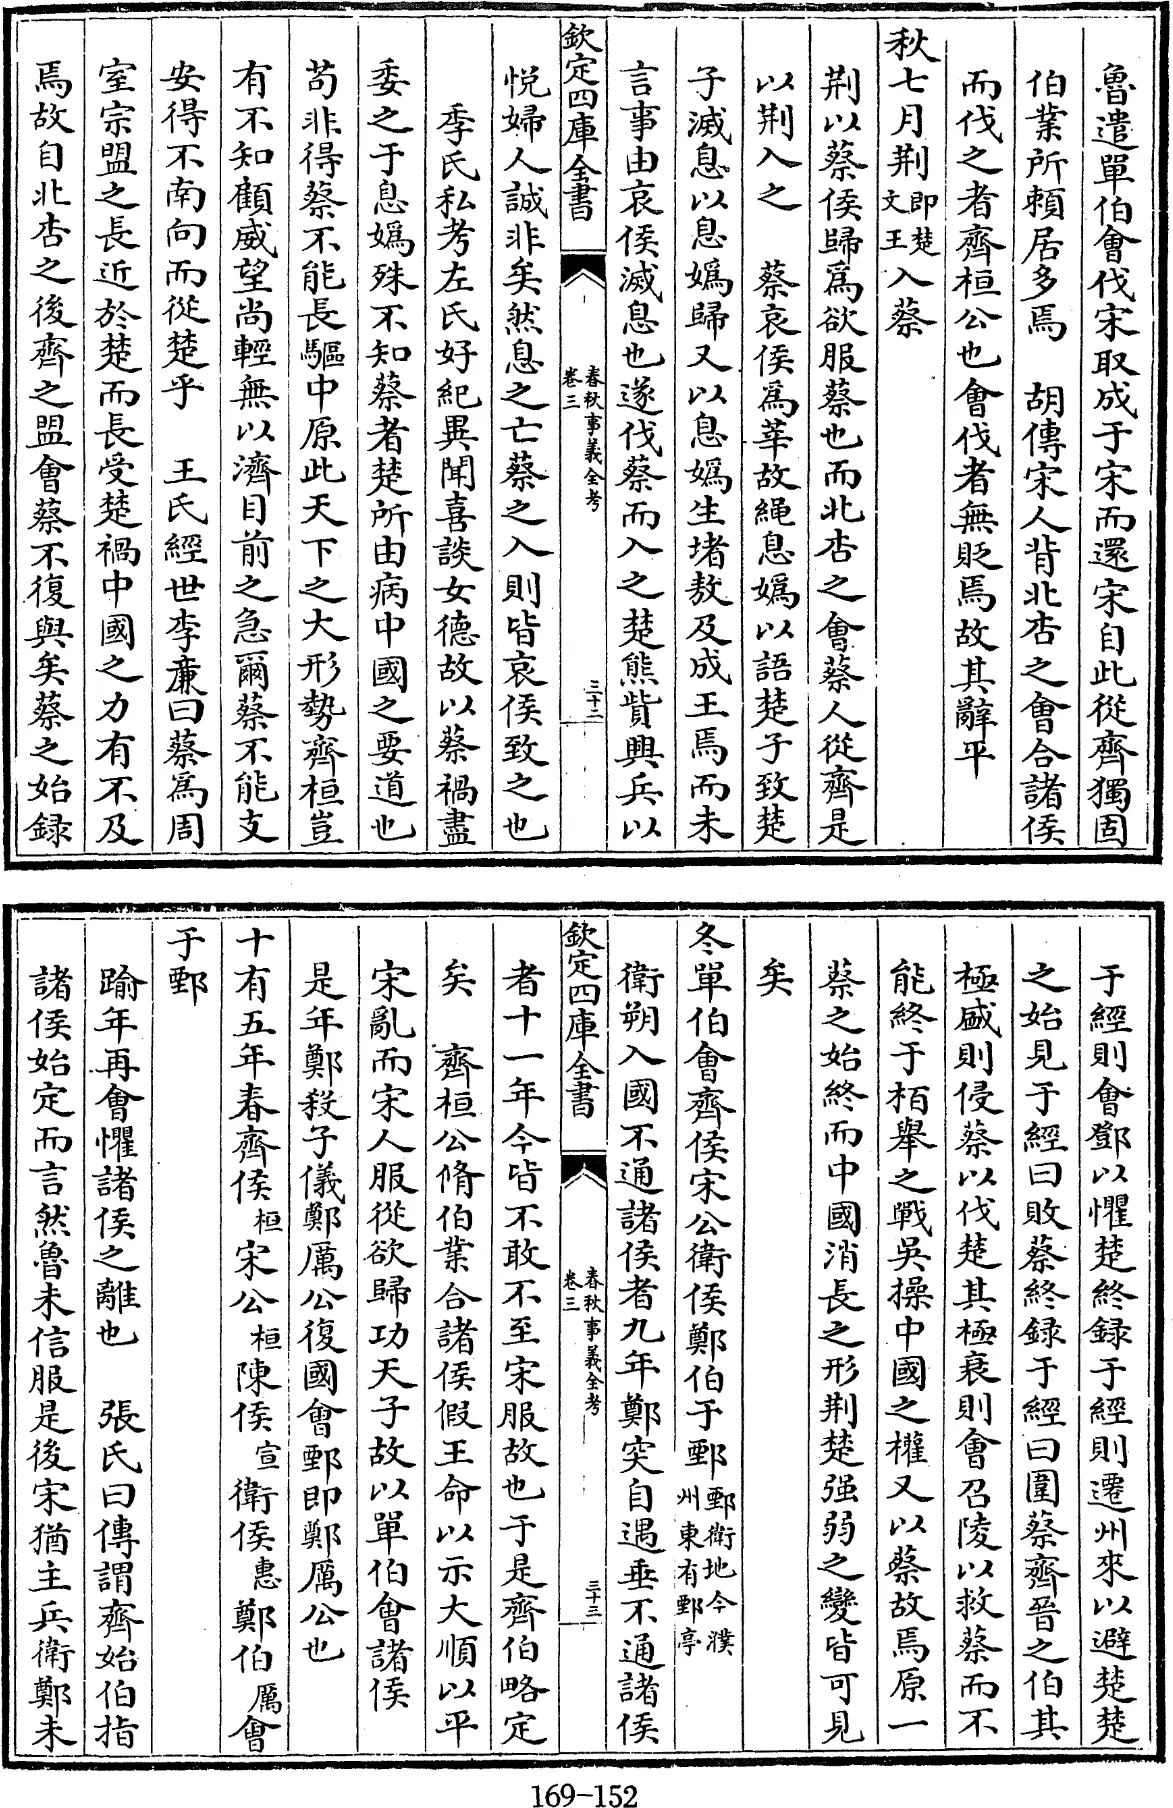 魯遣單伯會伐宋取成于宋而還宋自此從齊獨固
伯業所賴居多焉　胡傳宋人背北杏之會合諸侯
而伐之者齊桓公也會伐者無貶焉故其辭平
秋七月荆即楚文王入蔡
荆以蔡侯歸為欲服蔡也而北杏之會蔡人從齊是
以荆入之　蔡哀侯為莘故繩息媯以語楚子致楚
子滅息以息媯歸又以息媯生堵敖及成王焉而未
言事由哀侯滅息也遂伐蔡而入之楚熊貲興兵以
欽定四庫全書
春秋事義全考
卷三
三十二
悦婦人誠非矣然息之亡蔡之入則皆哀侯致之也
季氏私考左氏好紀異聞喜談女德故以蔡禍盡
委之于息媯殊不知蔡者楚所由病中國之要道也
苟非得蔡不能長驅中原此天下之大形勢齊桓豈
有不知顧威望尚輕無以濟目前之急爾蔡不能支
安得不南向而從楚乎　王氏經世李亷曰蔡為周
室宗盟之長近於楚而長受楚禍中國之力有不及
焉故自北杏之後齊之盟會蔡不復與矣蔡之始録
于經則會鄧以懼楚終録于經則遷州來以避楚楚
之始見于經曰敗蔡終録于經曰圍蔡齊晉之伯其
極盛則侵蔡以伐楚其極衰則會召陵以救蔡而不
能終于栢舉之戰吳操中國之權又以蔡故焉原一
蔡之始終而中國消長之形荆楚强弱之變皆可見
矣
冬單伯會齊侯宋公衛侯鄭伯于鄄鄄衛地今濮州東有鄄亭
衛朔入國不通諸侯者九年鄭突自遇垂不通諸侯
欽定四庫全書
春秋事義全考
卷三
三十三
者十一年今皆不敢不至宋服故也于是齊伯略定
矣　齊桓公脩伯業合諸侯假王命以示大順以平
宋亂而宋人服從欲歸功天子故以單伯會諸侯
是年鄭殺子儀鄭厲公復國會鄄即鄭厲公也
十有五年春齊侯桓宋公桓陳侯宣衛侯惠鄭伯厲會
于鄄
踰年再會懼諸侯之離也　張氏曰傳謂齊始伯指
諸侯始定而言然魯未信服是後宋猶主兵衛鄭未
169-152